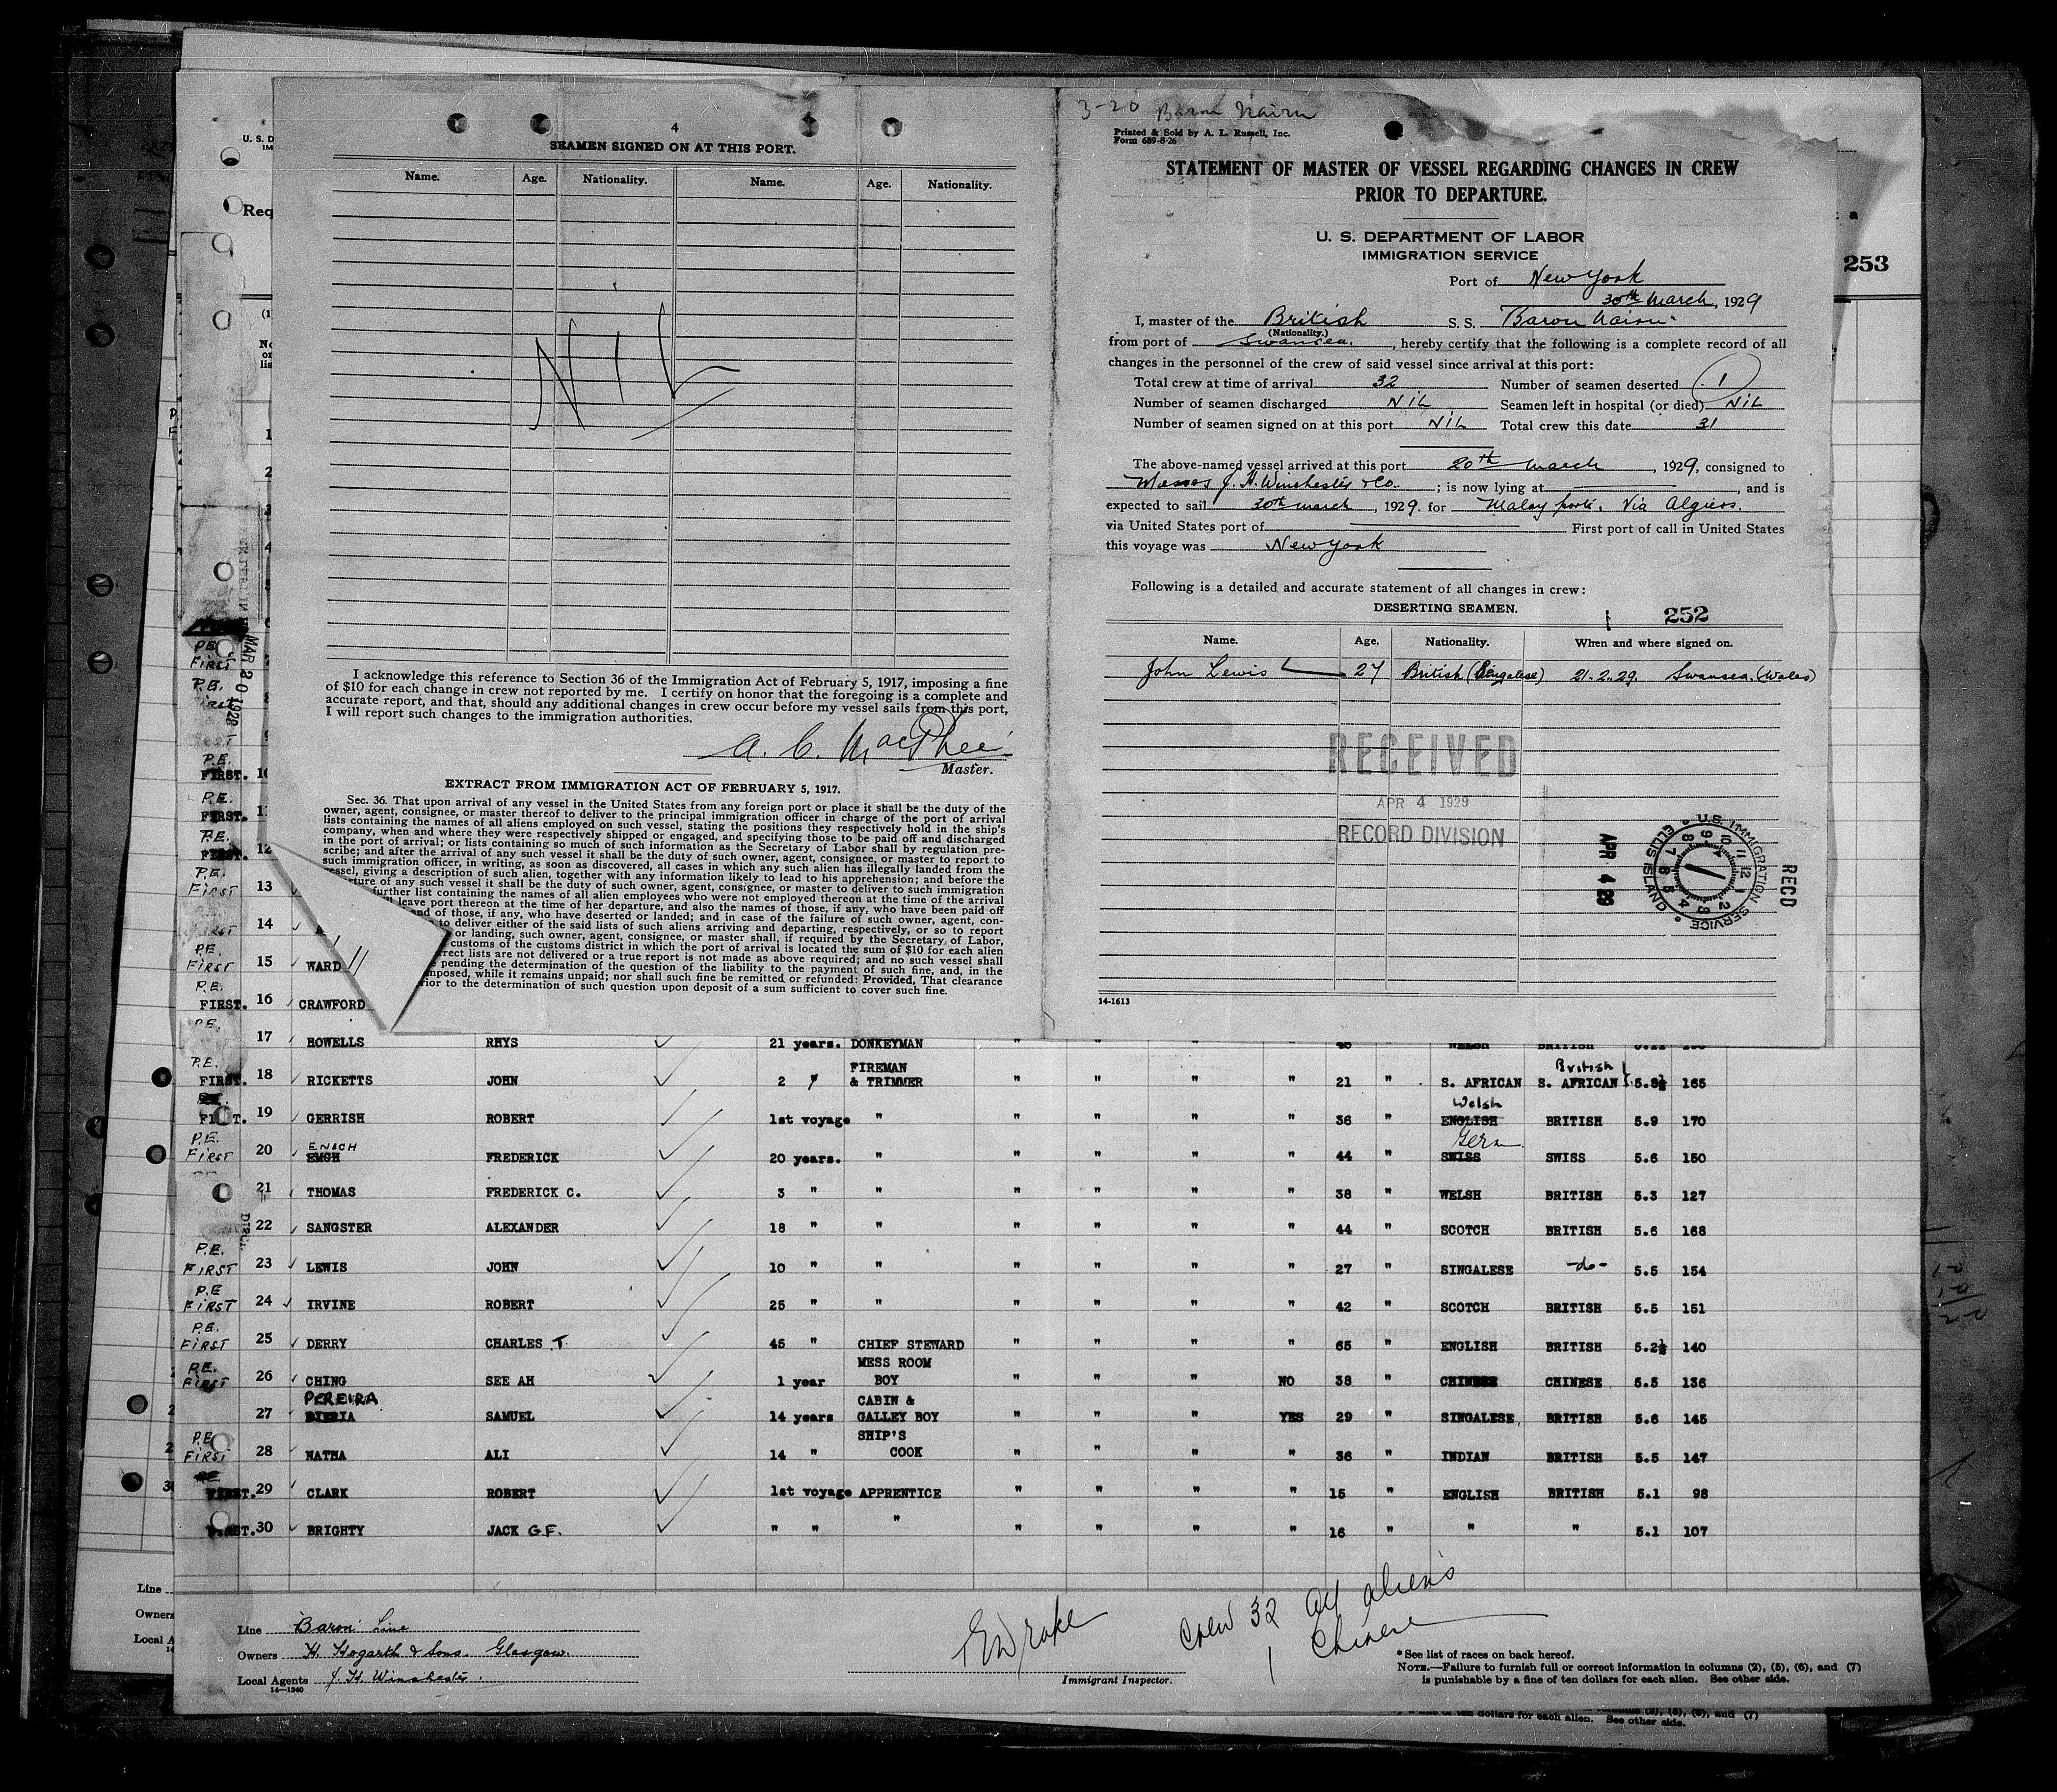 4
SEAMEN SIGNED ON AT THIS PORT.
Name. Age. Nationality. Name. Age. Nationality.
NIL
I acknowledge this reference to Section 36 of the Immigration Act of February 5, 1917, imposing a fine
of $10 for each change in crew not reported by me. I certify on honor that the foregoing is a complete and
accurate report, and that, should any additional changes in crew occur before my vessel sails from this port,
I will report such changes to the immigration authorities.
A. C. MacPhee
Master.
EXTRACT FROM IMMIGRATION ACT OF FEBRUARY 5, 1917.
Sec. 36. That upon arrival of any vessel in the United States from any foreign port or place it shall be the duty of the
owner, agent, consignee, or master thereof to deliver to the principal immigration officer in charge of the port of arrival
lists containing the names of all aliens employed on such vessel, stating the positions they respectively hold in the ship's
company, when and where they were respectively shipped or engaged, and specifying those to be paid off and discharged
in the port of arrival; or lists containing so much of such information as the Secretary of Labor shall by regulation pre-
scribe; and after the arrival of any such vessel it shall be the duty of such owner, agent, consignee, or master to report to
such immigration officer, in writing, as soon as discovered, all cases in which any such alien has illegally landed from the
vessel, giving a description of such alien, together with any information likely to lead to his apprehension; and before the
ture of any such vessel it shall be the duty of such owner, agent, consignee, or master to deliver to such immigration
further list containing the names of all alien employees who were not employed thereon at the time of the arrival
ll leave port thereon at the time of her departure, and also the names of those, if any, who have been paid off
nd of those, if any, who have deserted or landed; and in case of the failure of such owner, agent, con-
to deliver either of the said lists of such aliens arriving and departing, respectively, or so to report
or landing, such owner, agent, consignee, or master shall, if required by the Secretary of Labor,
customs of the customs district in which the port of arrival is located the sum of $10 for each alien
rrect lists are not delivered or a true report is not made as above required; and no such vessel shall
pending the determination of the question of the liability to the payment of such fine, and, in the
mposed, while it remains unpaid; nor shall such fine be remitted or refunded: Provided, That clearance
rior to the determination of such question upon deposit of a sum sufficient to cover such fine.
3-20 Baron Nairn
Printed & Sold by A. L. Russell, Inc.
Form 689-8-26
STATEMENT OF MASTER OF VESSEL REGARDING CHANGES IN CREW
PRIOR TO DEPARTURE.
U. S. DEPARTMENT OF LABOR
IMMIGRATION SERVICE
Port of New York
30th March, 1929
I, master of the British S. S. Baron Nairn.
(Nationality.)
from port of Swansea, , hereby certify that the following is a complete record of all
changes in the personnel of the crew of said vessel since arrival at this port:
Total crew at time of arrival 32 Number of seamen deserted 1
Number of seamen discharged NIL Seamen left in hospital (or died) NIL
Number of seamen signed on at this port NIL Total crew this date 31
The above-named vessel arrived at this port 20th March , 1929, consigned to
Messrs J. H. Winchester & Co. ; is now lying at , and is
expected to sail 30th March , 1929. for Malay ports. Via Algiers.
via United States port of First port of call in United States
this voyage was New York
Following is a detailed and accurate statement of all changes in crew:
DESERTING SEAMEN. 252
Name. Age. Nationality. When and where signed on.
John Lewis 27 British (Singalese) 21.2.29. Swansea. (Wales)
RECEIVED
APR 4 1929
RECORD DIVISION
APR 4 29
U.S. IMMIGRATION SERVICE
ELLIS ISLAND
RECD
14-1613
253
U. S. D
Req
MAR 20 1929
P.E. FIRST. 10
P.E. FIRST. 11
P.E. FIRST. 12
P.E. FIRST 13
14
P.E. FIRST 15 WARD
P.E. FIRST. 16 CRAWFORD
P.E. 17 HOWELLS RHYS 21 years. DONKEYMAN " " " " " WELSH BRITISH
P.E. FIRST. 18 RICKETTS JOHN 2 " FIREMAN & TRIMMER " " " " 21 " S. AFRICAN British S. AFRICAN 5.8½ 165
19 GERRISH ROBERT 1st voyage " " " " " 36 " Welsh ENGLISH BRITISH 5.9 170
P.E. FIRST 20 ENICH EMCH FREDERICK 20 years. " " " " " 44 " Germ SWISS SWISS 5.6 150
21 THOMAS FREDERICK C. 3 " " " " " " 38 " WELSH BRITISH 5.3 127
22 SANGSTER ALEXANDER 18 " " " " " " 44 " SCOTCH BRITISH 5.6 168
P.E. FIRST 23 LEWIS JOHN 10 " " " " " " 27 " SINGALESE -do- 5.5 154
P.E FIRST 24 IRVINE ROBERT 25 " " " " " " 42 " SCOTCH BRITISH 5.5 151
P.E. FIRST 25 DERRY CHARLES T. 45 " CHIEF STEWARD " " " " 65 " ENGLISH BRITISH 5.2½ 140
P.E. FIRST 26 CHING SEE AH 1 year MESS ROOM BOY " " " NO 38 " CHINESE CHINESE 5.5 136
27 PEREIRA SAMUEL 14 years CABIN & GALLEY BOY " " " YES 29 " SINGALESE, BRITISH 5.6 145
P.E FIRST 28 NATHA ALI 14 " SHIP'S COOK " " " " 36 " INDIAN BRITISH 5.5 147
FIRST. 29 CLARK ROBERT 1st voyage APPRENTICE " " " " 15 " ENGLISH BRITISH 5.1 98
30 BRIGHTY JACK G.F. " " " " " " " 16 " " " 5.1 107
Line Baron Line
Owners H. Hogarth & Sons. Glasgow.
Local Agents J. H. Winchester.
14-1240
E Drake
Immigrant Inspector.
Crew 32 all aliens
1 Chinese
* See list of races on back hereof.
NOTE.—Failure to furnish full or correct information in columns (2), (5), (6), and (7)
is punishable by a fine of ten dollars for each alien. See other side.
Line
Owners
Local A
ten dollars for each alien. See other side.